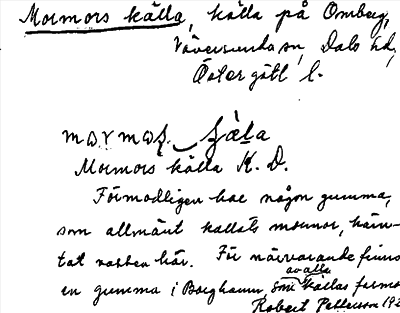 Mormors källa, källa på Omberg,
Väversunda sn, Dals hd,
Östergötl l.
Mormors källa K. D.
Förmodligen har någon gumma,
som allmänt kallats mormor, häm-
tat vatten här. För närvarande finns
av alla
en gumma i Borghamn som kallas farmor
Robert Pettersson 19